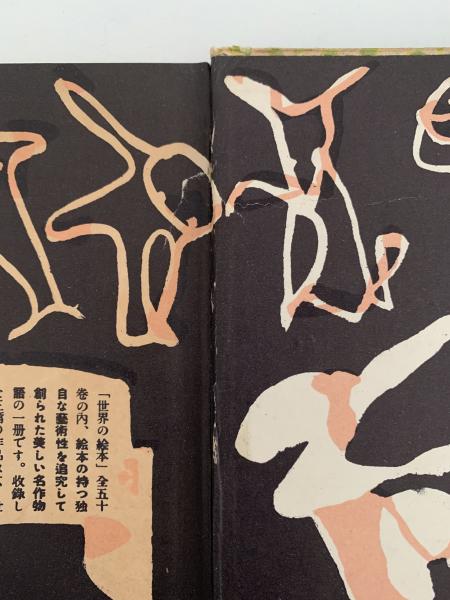 「世界の絵本」全五十
巻の内、絵本の持つ独
自な藝術性を追究して
創られた美しい名作物
語の一册です。收録し